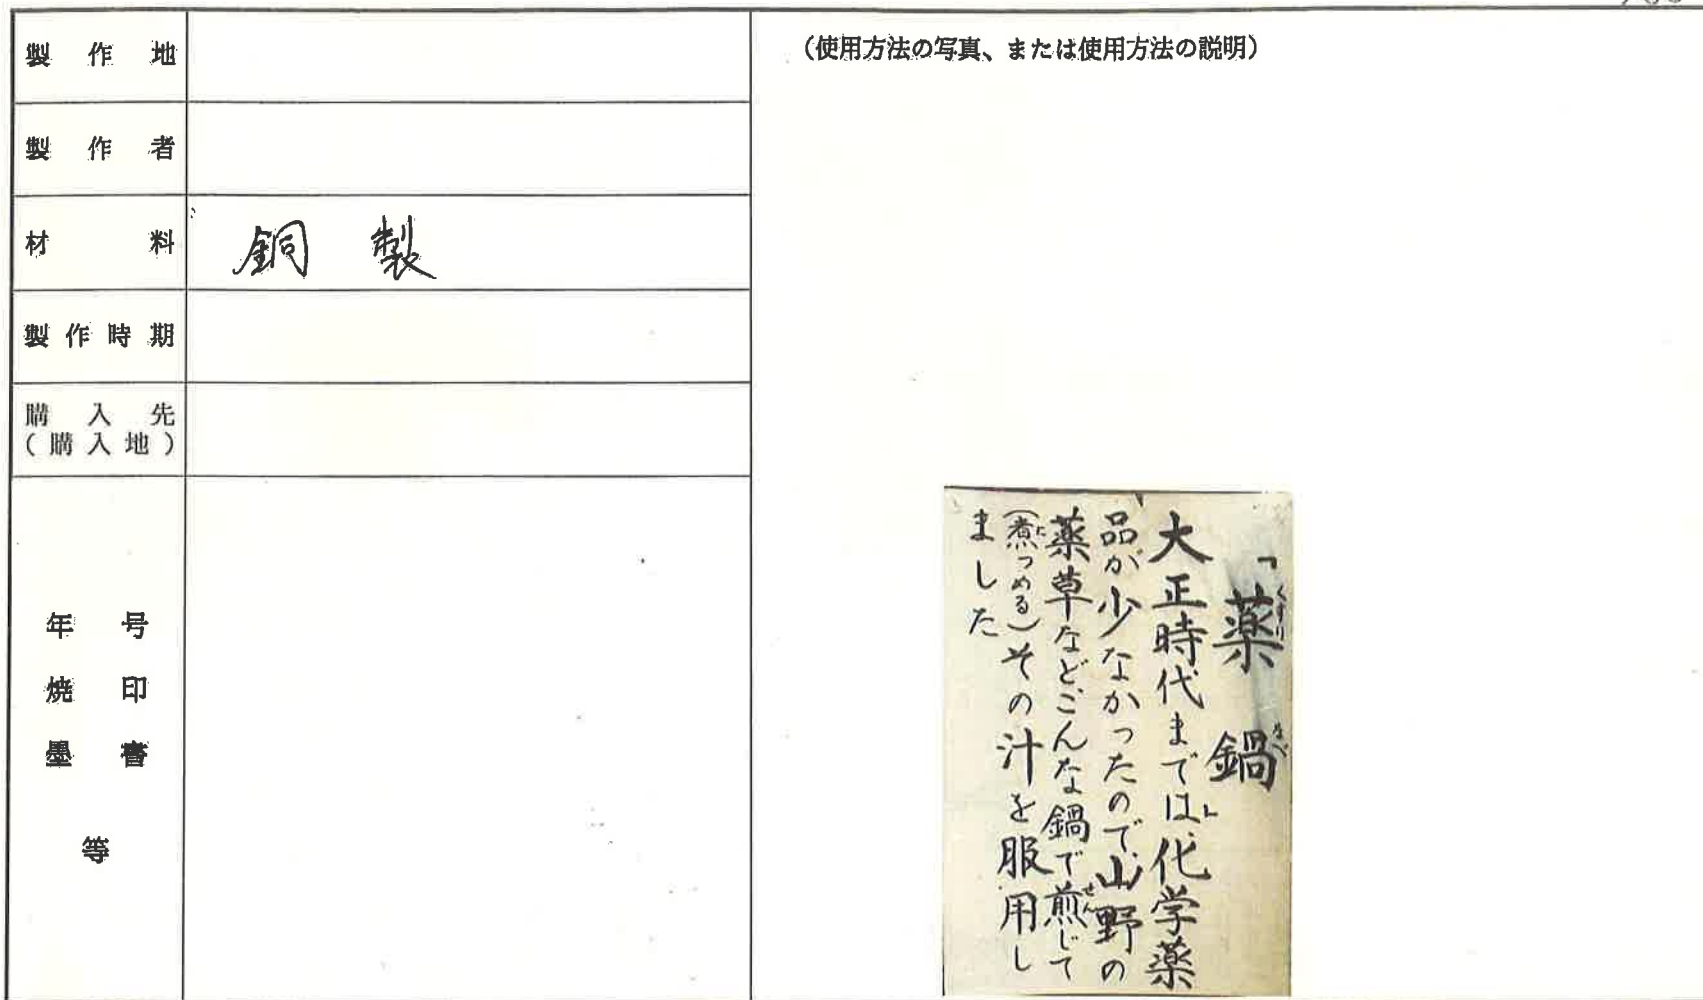 製作地
製作者
材料
銅製
製作時期
購入先
(購入地)
年号
焼印
墨書
等
(使用方法の写真、または使用方法の説明)
「薬鍋」
くすり
なべ
大正時代までは、化学薬
品が少なかったので、山野の
薬草などこんな鍋で煎じて
せん
(煮つめる)その汁を服用し
に
ました